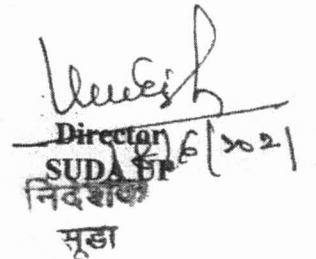 Umesh
Director
18/6/2021
SUDA UP
निदेशक
सूडा